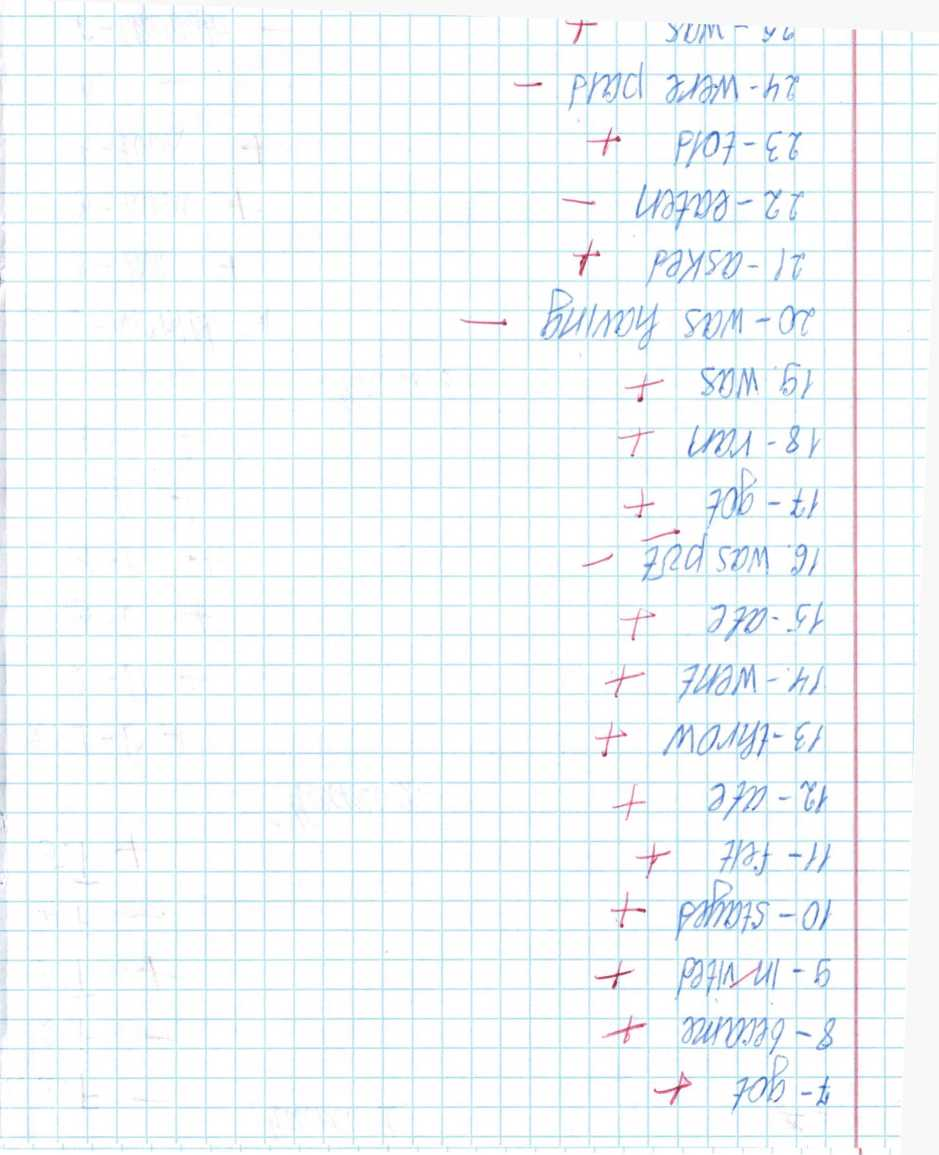 7 - got +
8 - became +
9 - invited +
10 - stayed +
11 - felt +
12 - ate +
13 - throw +
14. - went +
15 - ate +
16. was put -
17 - got +
18 - ran +
19. was +
20 - was having -
21 - asked +
22 - eaten -
23 - told +
24 - were paid -
25 - was +